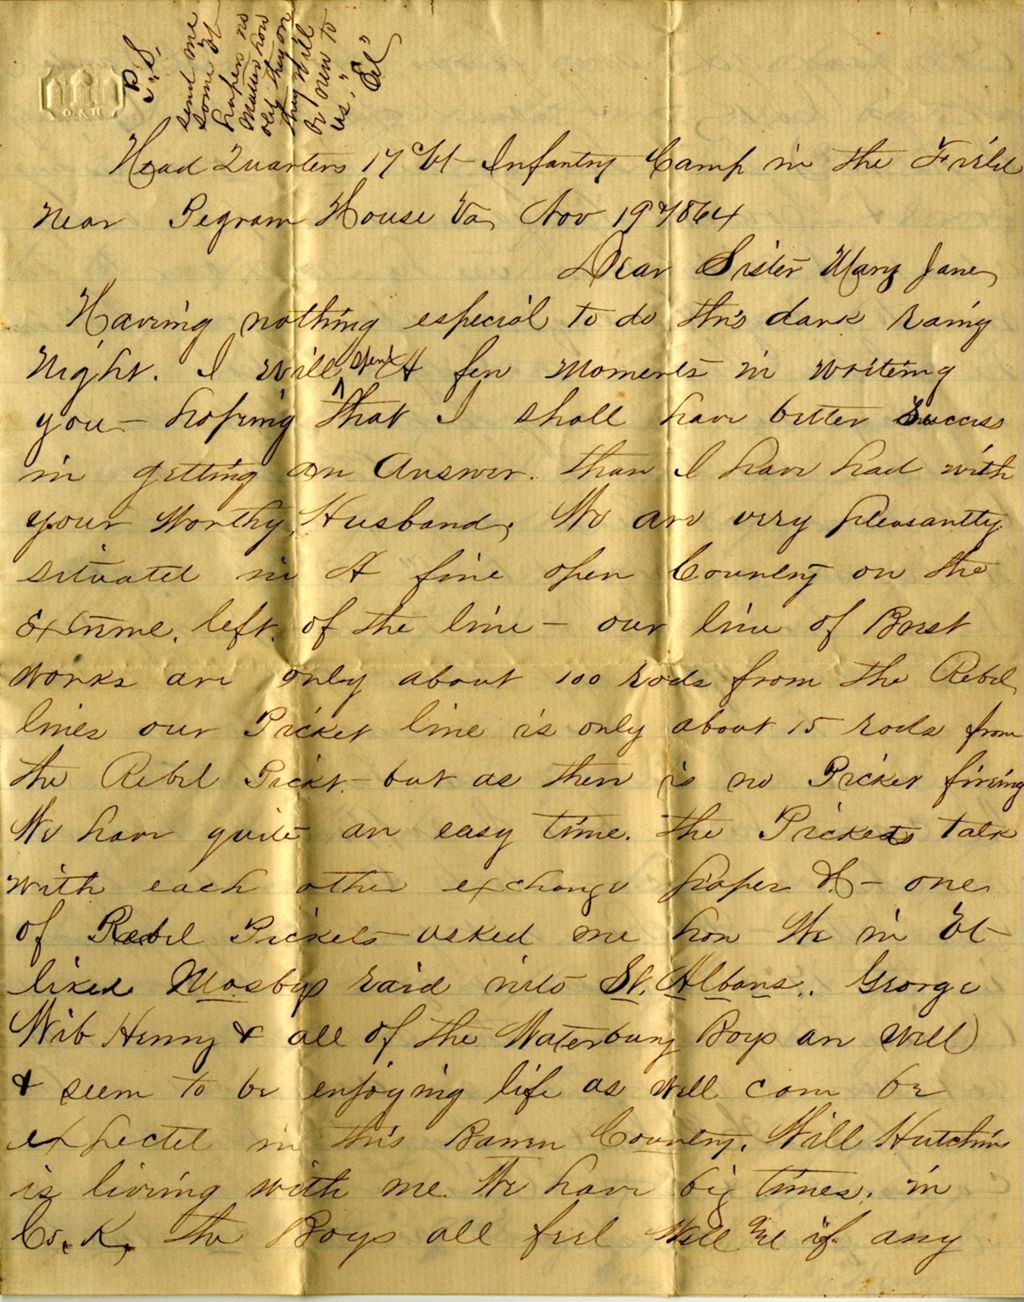 P.S.
send me
some Vt
papers no
matter how
old they on
they will
be new to
us, "Ed"
Head Quarters 17th Vt Infantry Camp in the Field
near Pegram House Va, Nov 19th 1864
Dear Sister Mary Jane,
Having nothing especial to do this dark rainy
night. I will spend A few moments in writing
you - hoping that I shall have better success
in getting an Answer. than I have had with
your worthy Husband, We are very pleasantly
situated in A fine open Country on the
Extrime. left. of the line - our line of Brest
works are only about 100 rods from the Rebel
lines our Picket line is only about 15 rods from
the Rebel Picket - but as there is no Picket firing
We have quite an easy time. the Pickets talk
with each other exchange papers &c - one
of Rebel Pickets asked me how We in Vt
liked Mosbys raid into St. Albans. George
Wib Henry & all of the Waterbury Boys are well
& seem to be enjoying life as well as can be
expected in this Barren Country. Will Hutchins
is living with me. We have big times. in
Co. K, the Boys all feel well if any